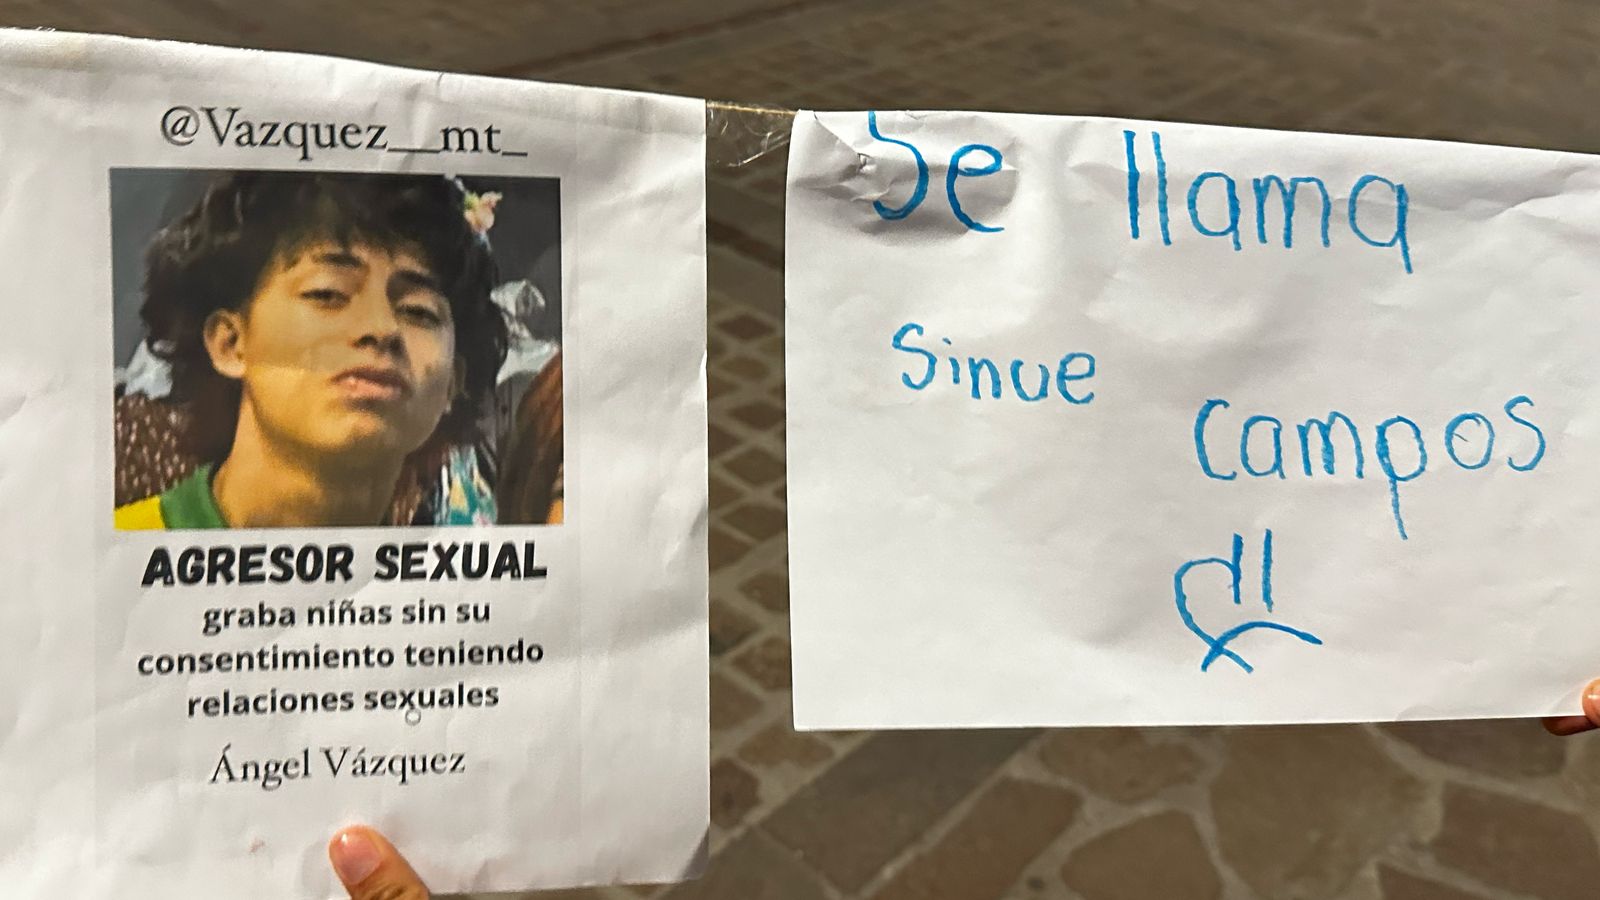 @Vazquez__mt_
AGRESOR SEXUAL
graba niñas sin su
consentimiento teniendo
relaciones sexuales
Ángel Vázquez
Se llama
Sinue
campos